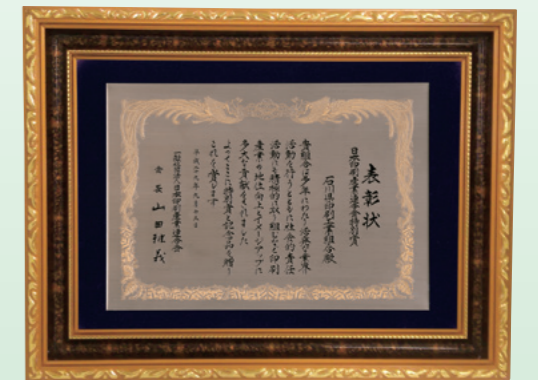 表彰状
日本印刷産業連合会特別賞
石川県印刷工業組合殿
貴組合は多年にわたり活発な業界
活動を行うとともに社会的責任
活動にも積極的に取り組むなど印刷
産業の地位向上とイメージアップに
多大な貢献をされました
よってここに特別賞と記念品を贈り
これを賞します
平成二十九年九月十三日
一般社団法人日本印刷産業連合会
会長 山田雅義